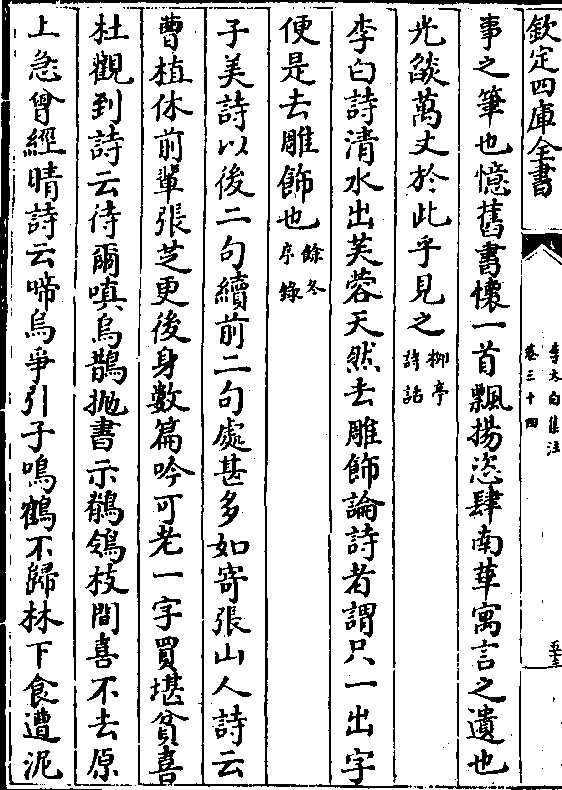 欽定四庫全書
李太白集注
卷三十四
事之筆也憶舊書懷一首飄揚恣肆南華寓言之遺也
光燄萬丈於此乎見之柳亭詩話
李白詩清水出芙蓉天然去雕飾論詩者謂只一出字
便是去雕飾也餘冬序錄
子美詩以後二句續前二句處甚多如寄張山人詩云
曹植休前輩張芝更後身數篇吟可老一字買堪貧喜
杜觀到詩云待爾嗔烏鵲拋書示鶺鴒枝間喜不去原
上急曾經晴詩云啼烏爭引子鳴鶴不歸林下食遭泥